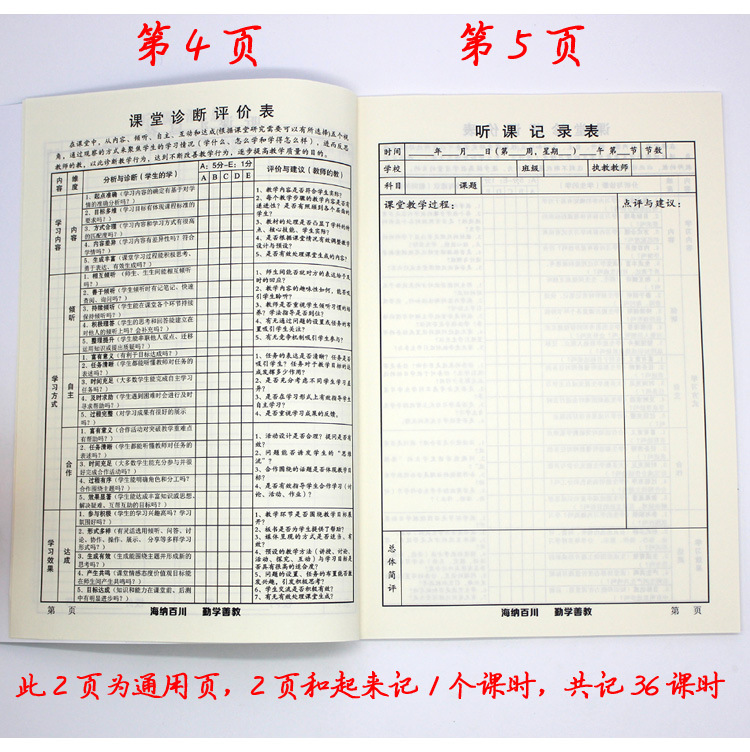 第4页 第5页
课堂诊断评价表
在课堂中，从内容、倾听、自主、互动和达成(根据课堂研究需要可以有所选择)五个视
角，通过观察的方式来聚焦学生的学习情况（学什么、怎么学和学得怎么样），进而反思
教师的教，以此诊断教学行为，达到不断改善教学行为，逐步提高教学质量的目的。
内容 维度 分析与诊断（学生的学） A：5分~E：1分 评价与建议（教师的教）
A B C D E
学习内容
内容
1．起点准确（学习内容的确定有基于对学
情的准确分析吗？）
2．目标多维（学习目标有体现课程标准的
要求吗？）
3．方式合理（学习内容和学习方式有很高
的匹配度吗？）
4．内容差异（学习内容有差异性吗？符合
学情吗？）
5．生成丰富（课堂学习过程能积极思考，
勇于表达、有效生成吗？）
1、教学内容是否符合学生实际？
2、每个教学步骤的教学内容是否有
递进性？是否有照顾到各个层面的
学生？
3、教材的处理是否凸显了学科的特
点、核心技能、学生实际？
4、是否根据课堂情况有效调整教学
设计与预设？
5、是否有效处理课堂生成的内容？
学习方式
倾听
1．相互倾听（师生、生生间能相互倾听
吗？）
2．善于倾听（学生倾听时有记笔记、快速
查阅、询问吗？）
3．持续倾听（学生能在课堂各个环节持续
保持倾听吗？）
4．积极理答（学生的思考和回答能建立在
对他人的倾听上吗？会补充吗？）
5．整理提升（学生能串联他人观点、迁移
运用知识或提出质疑吗？）
1、师生间能否就对方的表达给予及
时的回应？
2、教学内容的趣味性如何，能否吸
引学生聆听？
3、教师是否重视学生倾听习惯的培
养？学法指导是否到位？
4、有无通过问题的设置或任务的布
置吸引学生关注？
5、有无竞争机制吸引学生参与？
自主
1．富有意义（有利于目标达成吗？）
2．任务清晰（学生都能听懂教师对任务的
表述吗？）
3．时间充足（大多数学生能完成自主学习
任务吗？）
4．及时求助（学生遇到困难时会进行及时
寻求帮助吗？）
5．过程完整（对学习成果有很好的展示
吗？）
1、任务的表达是否清晰？任务是否
吸引学生？任务对于教学目标的达
成发挥多少作用？
2、是否充分考虑不同学生学习差
异？
3、是否在学习形式上有效指导学生
自主学习？
4、是否重视学习成果的反馈。
合作
1．富有意义（合作活动对突破教学重难点
有帮助吗？）
2．任务清晰（学生都能听懂教师对任务的
表述吗？）
3．时间充足（大多数学生能充分参与并很
好完成合作活动吗？）
4．过程有序（学生能明确角色和分工吗？
合作围绕主题吗？）
5．效果显著（学生能达成丰富知识或思想、
解决疑难、互帮互助的目标吗？）
1、活动设计是否合理？提问是否有
效？
2、问题能否诱发学生的“思维
流”？
3、合作围绕的话题是否体现教学目
标？
4、是否有效指导学生合作学习（讨
论、活动、作业）？
学习效果
达成
1．参与积极（学生的学习兴趣高吗？学习
氛围好吗？）
2．形式多样（有灵活选用倾听、问答、讨
论、协作、操作、展示、分享等多样学习
形式吗？）
3．生成有效（生成能围绕主题并形成新的
思考吗？）
4．产生共鸣（课堂情感态度价值观目标能
在师生间产生共鸣吗？）
5．目标达成（知识和能力在课堂前、后测
中有明显进步吗？）
1、教学环节是否围绕教学目标展
开？
2、板书是否为学生提供了帮助？
3、媒体呈现的方式是否适当，有
效？
4、预设的教学方法（讲授、讨论、
活动、探究、互动）与学习目标是
否具有很高的适合度？
5、问题的设置、任务的布置能否激
发兴趣，引发积极思考？
6、学生交流是否积极有效？
7、有无有效处理课堂生成？
第 页 海纳百川 勤学善教
听课记录表
时间 ____年__月__日（第__周，星期__）__午 第__节 节数
学校 班级 执教教师
科目 课题
课堂教学过程： 点评与建议：
总体简评
海纳百川 勤学善教 第 页
此2页为通用页，2页和起来记1个课时，共记36课时